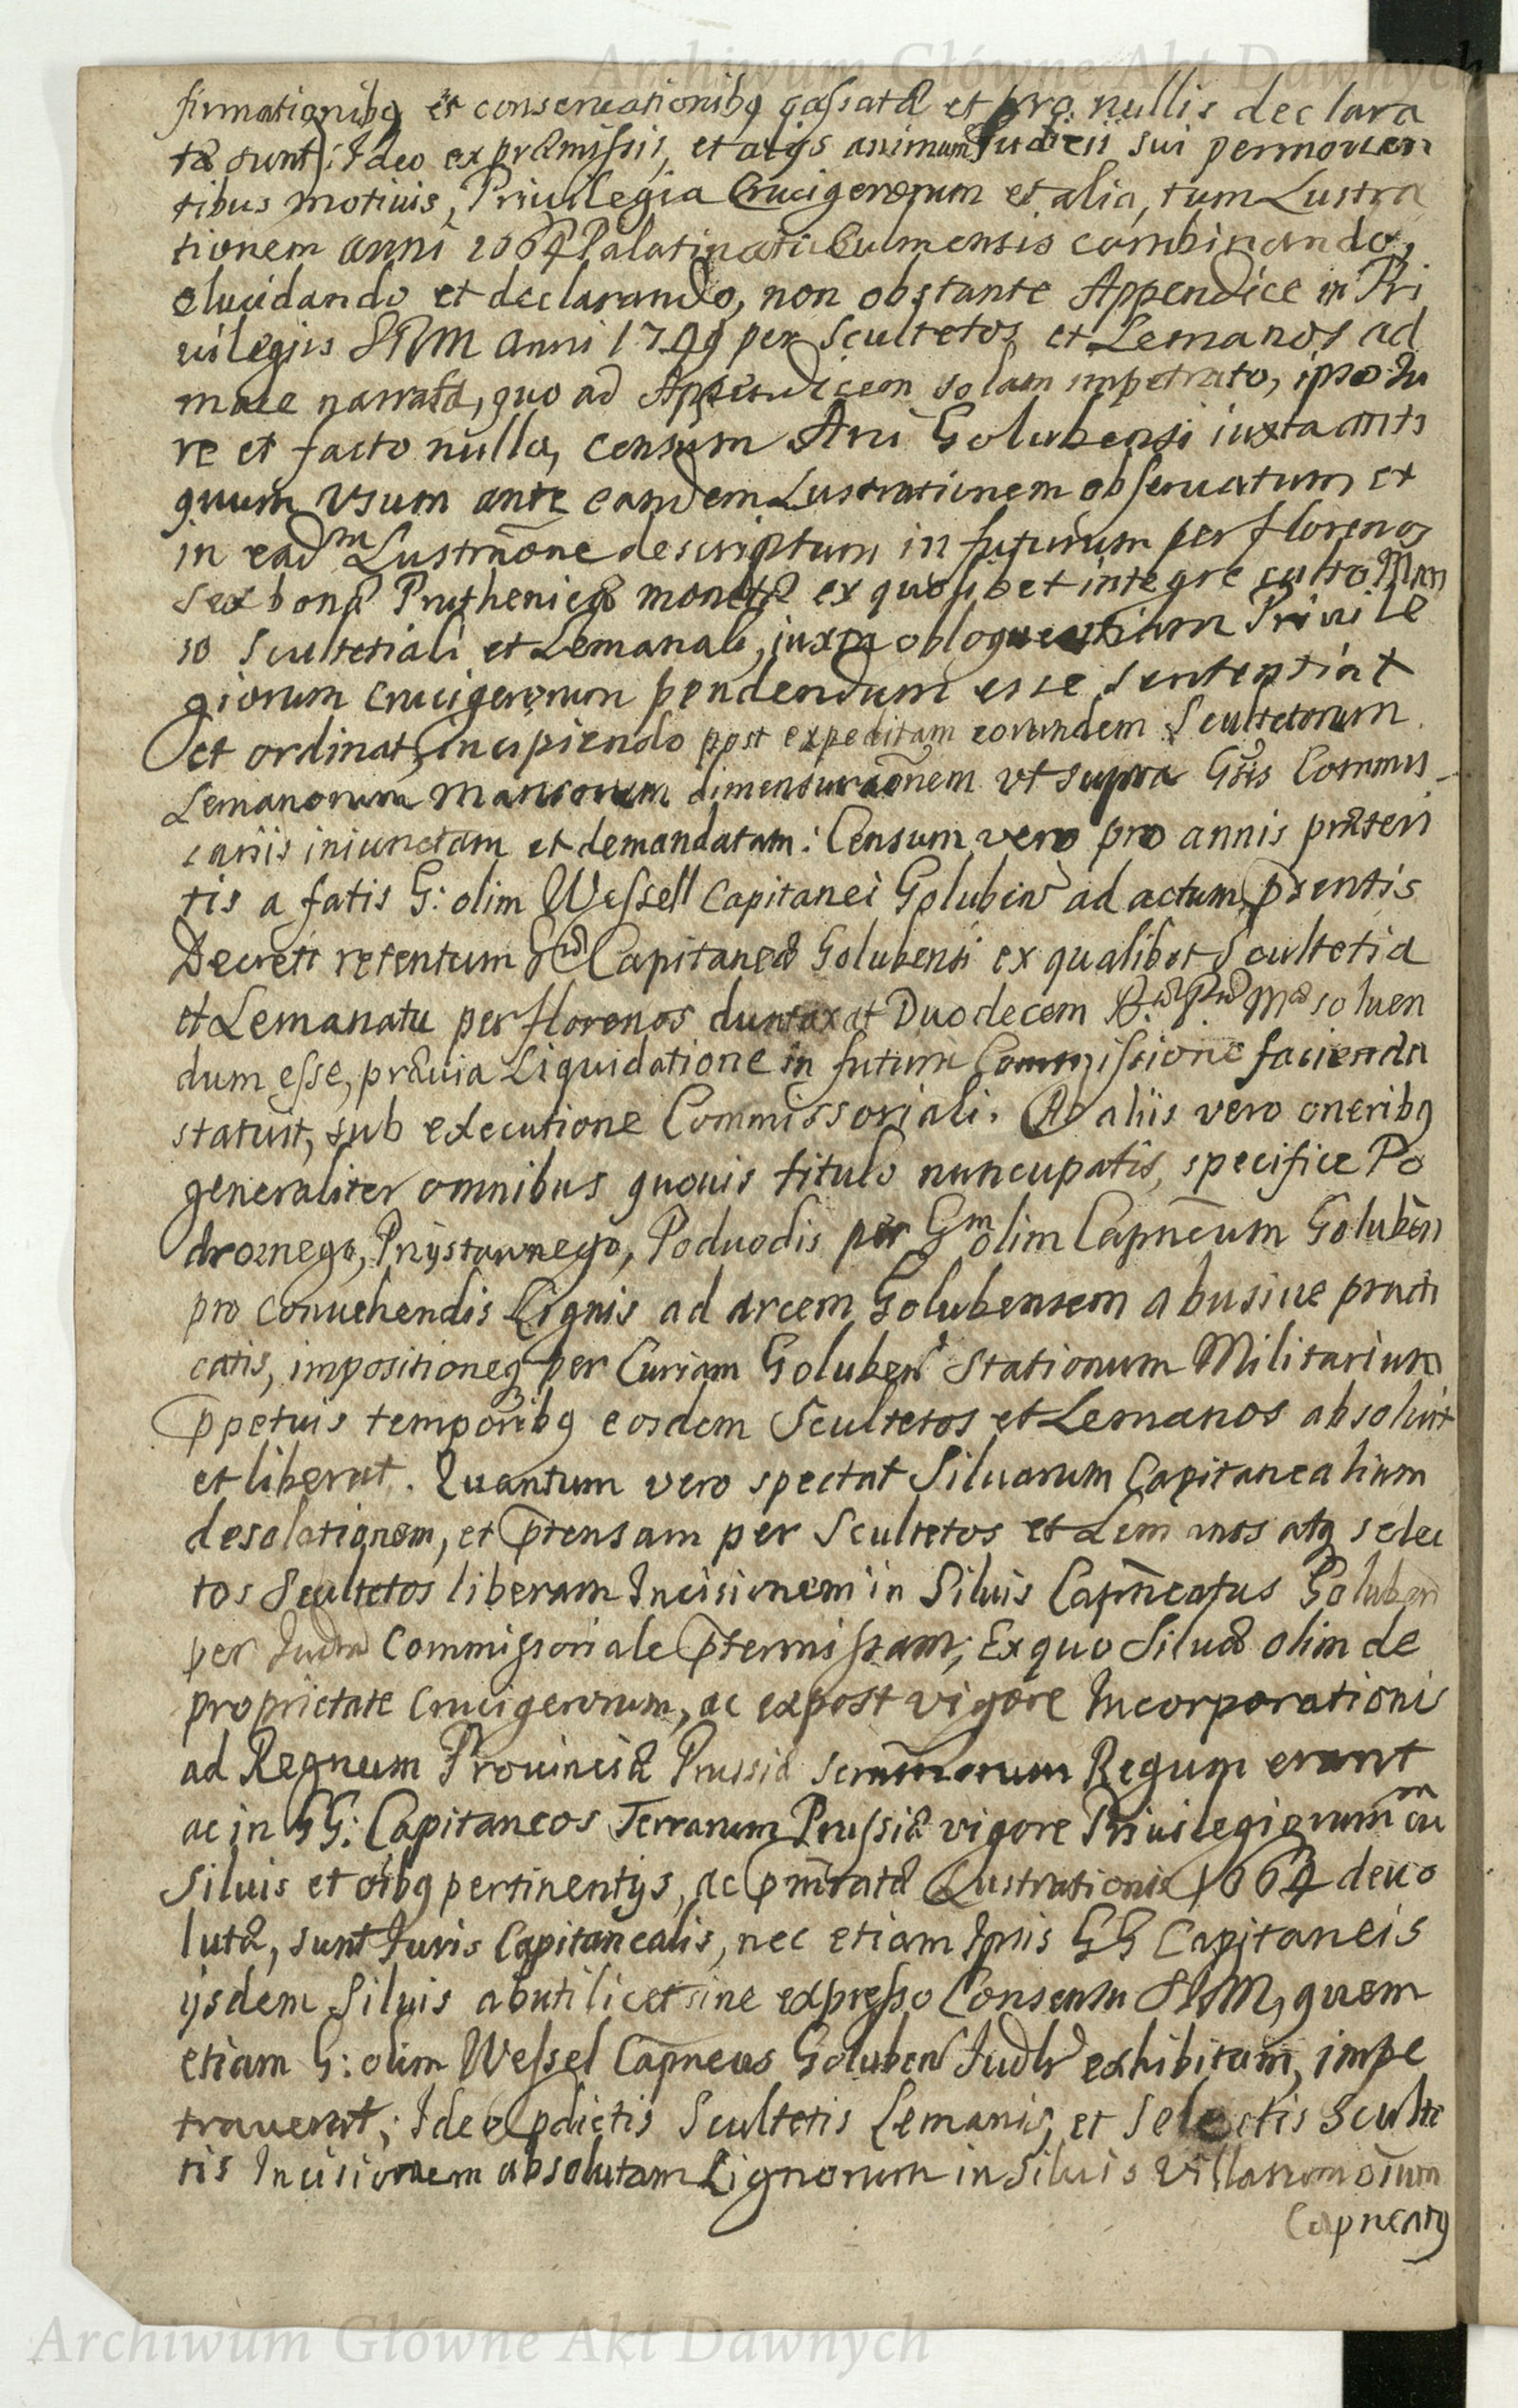 Archiwum Główne Akt Dawnych
firmationibq et conservationibq cassatæ et pro nullis declara
tæ sunt: Ideo ex præmissis, et alijs animum Judicii sui permoven
tibus motivis, Privilegia Crucigerorum et alia, tum Lustra
tionem anni 1664 Palatinatu Culmensis combinando,
elucidando et declarando, non obstante Appendice in Pri
vilegiis SRM anni 1749 per Scultetos et Lemanos ad
male narrata, quo ad Appendicem solam impetrato, ipso Ju
re et facto nullo, Censum Arci Golubensi iuxta anti
quum usum ante eandem Lustrationem observatum et
in ead̄m Lustrāone descriptum in futurum per florenos
sex bonæ Pruthenicæ monetæ ex quolibet integre culto Man
so Scultetiali et Lemanali, iuxta obloquentiam Privile
giorum Crucigerorum pendendum esse sententiat
et ordinat, incipiendo post expeditam eorundem Scultetorum
Lemanorum Mansorum dimensuraōnem ut supra Gsis Commis
sariis iniunctam et demandatam: Censum vero pro annis præteri
tis a fatis G: olim Wessell Capitanei Goluben ad actum p̄sentis
Decreti retentum Capitaneæ Golubensi ex qualibet Scultetia
et Lemanatu per florenos duntaxat Duodecem soluen
dum esse, prævia Liquidatione in futura Commissione facienda
statuit, sub executione Commissoriali. Ab aliis vero oneribq
generaliter omnibus quovis titulo nuncupatis, specifice Po
droznego, Przystawnego, Poduodis per Gm olim Capn̄eum Goluben
pro convehendis Lignis ad arcem Golubensem abusive practi
catis, impositioneq per Curiam Goluben Stationum Militarium
p̄petuis temporibq eosdem Scultetos et Lemanos absolvit
et liberat. Quantum vero spectat Silvarum Capitanealium
desolationem, et p̄tensam per Scultetos et Lemanos atq selec
tos Scultetos liberam Incisionem in Silvis Capn̄eatus Goluben
per Judm Commissoriale p̄termissam, Ex quo Silvæ olim de
proprietate Crucigerorum, ac expost vigore Incorporationis
ad Regnum Provinciæ Prussiæ Serm̄morum Regum erant
ac in GG: Capitaneos Terrarum Prussiæ vigore Privilegiorum cu
Silvis et oībq pertinentijs, ac Lustrationis 1664 devo
lutæ, sunt Juris Capitanealis, nec etiam Ipsis GG Capitaneis
ijsdem Silvis abuti licet sine expresso Consensu SRM, quem
etiam G: olim Wessel Capn̄eus Goluben Judlr exhibitum, impe
traverat; Ideo p̄dictis Scultetis Lemanis, et Selectis Sculte
tis Incisionem absolutam Lignorum in Silvis Villarum oīum
Capneatq
Archiwum Główne Akt Dawnych